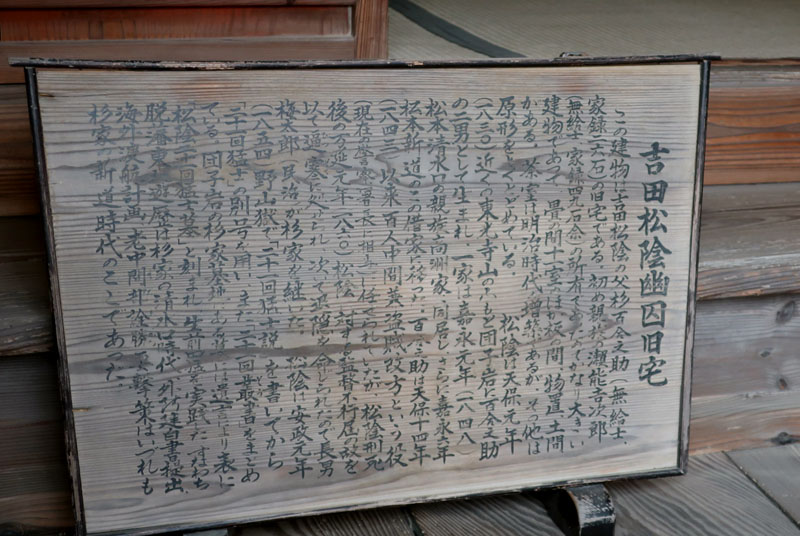 吉田松陰幽囚旧宅
この建物は吉田松陰の父杉百合之助(無給士、
家禄二六石)の旧宅である。初め親族の瀬能吉次郎
(無給士、家禄四九石余)の所有であったのでかなり大きい
建物であって、畳の間十一室のほか板の間、物置、土間
がある。茶室は明治時代の増築であるが、その他は
原形をとどめている。 松陰は天保元年
(一八三〇)近くの東光寺山のふもと団子岩に百合之助
の二男として生まれ、一家は嘉永元年(一八四八)
松本清水口の親族高洲家に同居し、さらに嘉永六年
松本新道のこの借家に移った。百合之助は天保十四年
(一八四三)以来百人中間頭兼盗賊改方という役
(現在の警察署長に相当)に任ぜられていたが、松陰刑死
後の万延元年(一八六〇)松陰に対する監督不行届の故を
以て逼塞に処せられ、次で退隠を命ぜられたので長男
梅太郎(民治)が杉家を継いだ。松陰は安政元年
(一八五四)野山獄で「二十一回猛士説」を書いてから
「二十一回猛士」の別号を用い、また「二十一回叢書」をまとめ
ている。団子岩の杉家墓地にある墓には遺言により表に
「松陰二十一回猛士墓」と刻まれ、生前四度を実践した。すなわち
脱藩東北遊歴は杉家の清水口時代、将及私言提出、
海外渡航計画、老中間部詮勝要撃策はいづれも
杉家の新道時代のことであった。